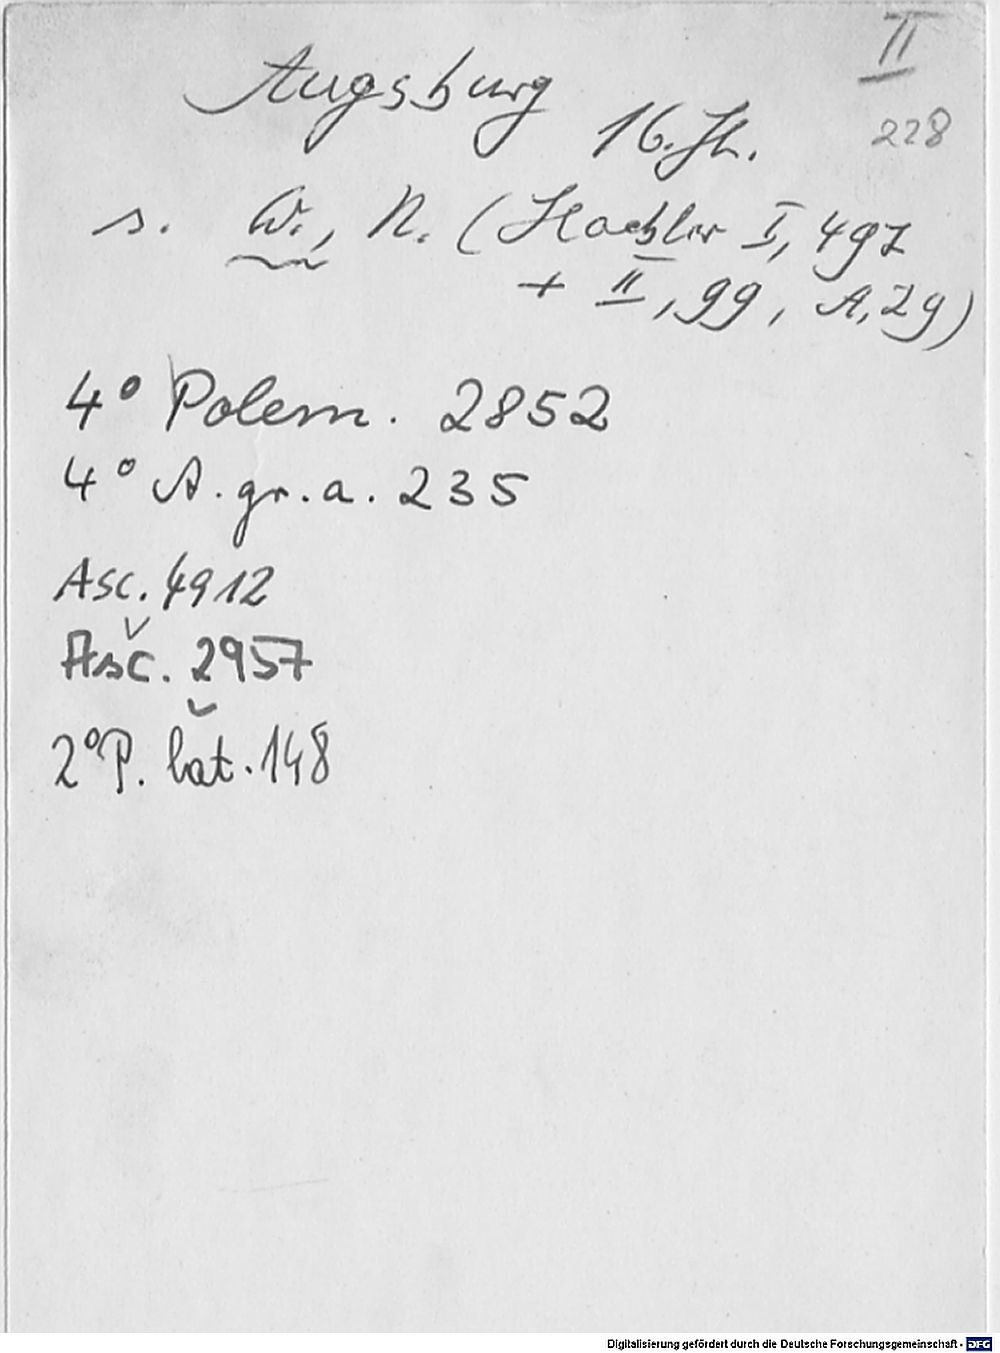 II
228
Augsburg
16. Jh.
s. W., N. (Haebler I, 497
+ II, 99, A, 29)
4° Polem. 2852
4° A. gr. a. 235
Asc. 4912
Asc. 2957
2° P. lat. 148
Digitalisierung gefördert durch die Deutsche Forschungsgemeinschaft - DFG